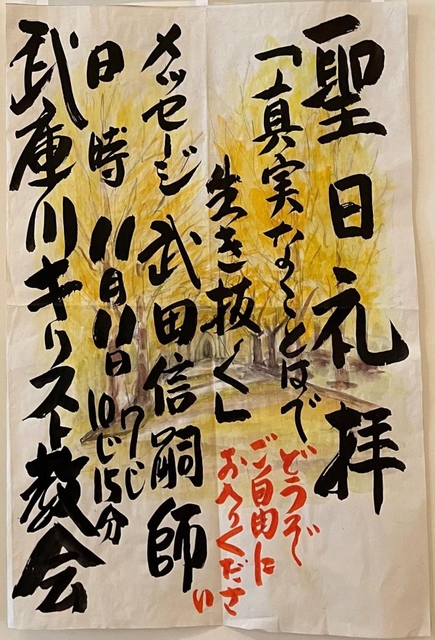 聖日礼拝
「真実なことばで
生き抜く」
どうぞ
ご自由に
お入りください
メッセージ 武田信嗣師
日時 11月11日 7じ
10じ15分
武庫川キリスト教会